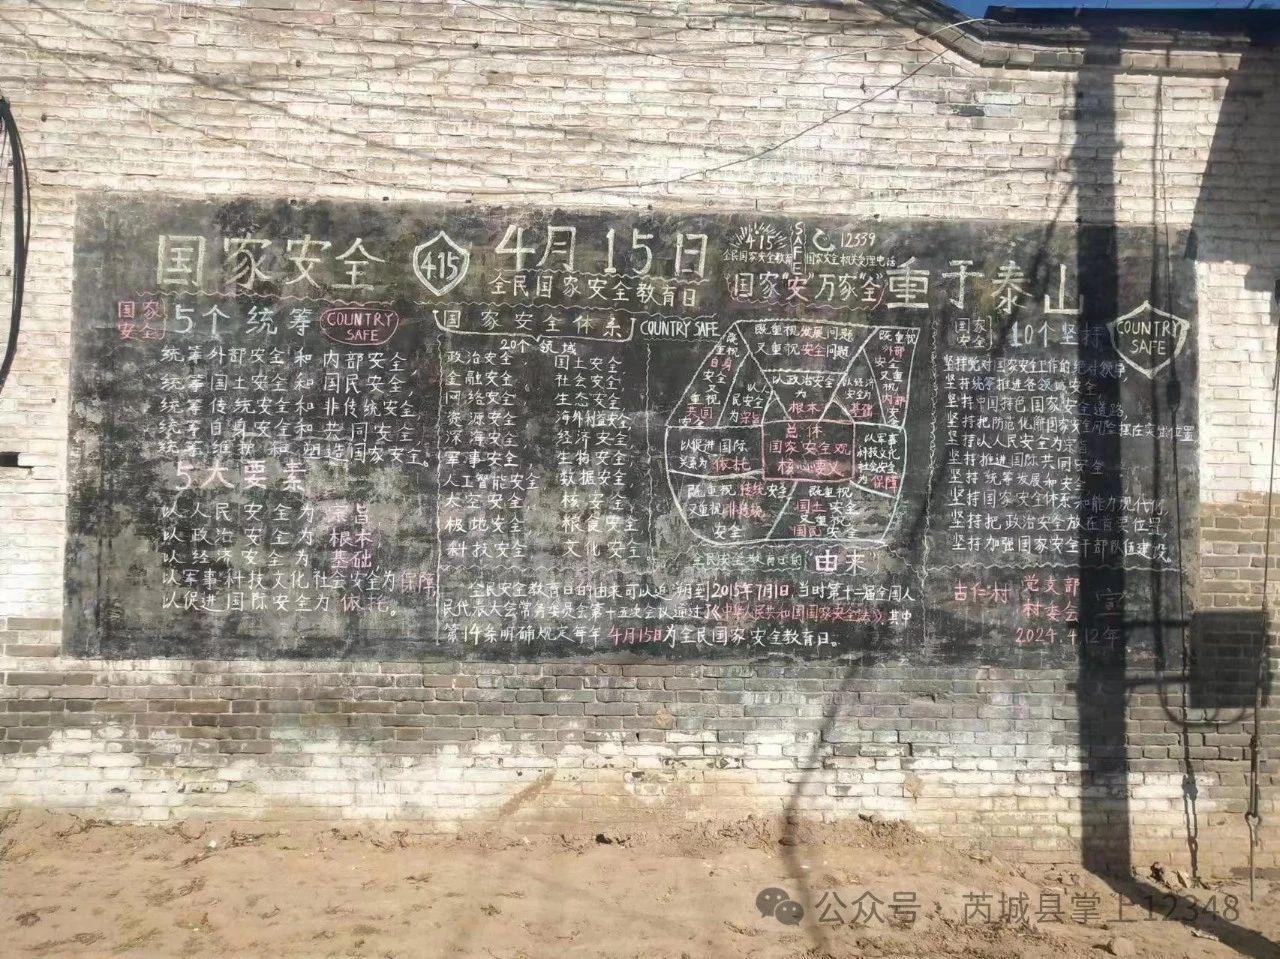 国家安全
415
4月15日
全民国家安全教育日
415
SAFE
12339
全民国家安全教育
国家安全机关受理电话
国家"安"万家"全"
重于泰山
国家安全
5个统筹
COUNTRY SAFE
统筹外部安全和内部安全,
统筹国土安全和国民安全,
统筹传统安全和非传统安全,
统筹自身安全和共同安全,
统筹维护和塑造国家安全。
5大要素
以人民安全为宗旨
以政治安全为根本,
以经济安全为基础,
以军事科技文化社会安全为保障,
以促进国际安全为依托。
国家安全体系
COUNTRY SAFE
20个领域
政治安全,
金融安全,
网络安全,
资源安全,
深海安全,
军事安全,
人工智能安全
太空安全,
极地安全,
科技安全,
国土安全,
社会安全,
生态安全,
海外利益安全,
经济安全,
生物安全,
数据安全,
核安全,
粮食安全,
文化安全,
既重视发展问题
又重视安全问题
既重视自身安全又重视共同
既重视外部安全又重视内部安全
以人民安全为宗旨
以政治安全为根本
以经济安全为基础
总体
国家安全观
核心要义
以促进国际
安全为依托
以军事科技文化社会安全为保障
既重视传统安全
又重视非传统
安全
既重视
国土安全
又重视
国民安全
全民安全教育日的"由来"
全民安全教育日的由来可以追溯到2015年7月1日,当时第十二届全国人
民代表大会常务委员会第十五次会议通过了《中华人民共和国国家安全法》,其中
第14条明确规定每年4月15日为全民国家安全教育日。
国家安全
10个坚持
COUNTRY SAFE
坚持党对国家安全工作的绝对领导,
坚持统筹推进各领域安全,
坚持中国特色国家安全道路,
坚持把防范化解国家安全风险摆在突出位置
坚持以人民安全为宗旨
坚持推进国际共同安全
坚持统筹发展和安全
坚持国家安全体系和能力现代化,
坚持把政治安全放在首要位置,
坚持加强国家安全干部队伍建设,
古仁村 党支部
村委会 宣
2024.4.12年
公众号 · 芮城县掌上12348